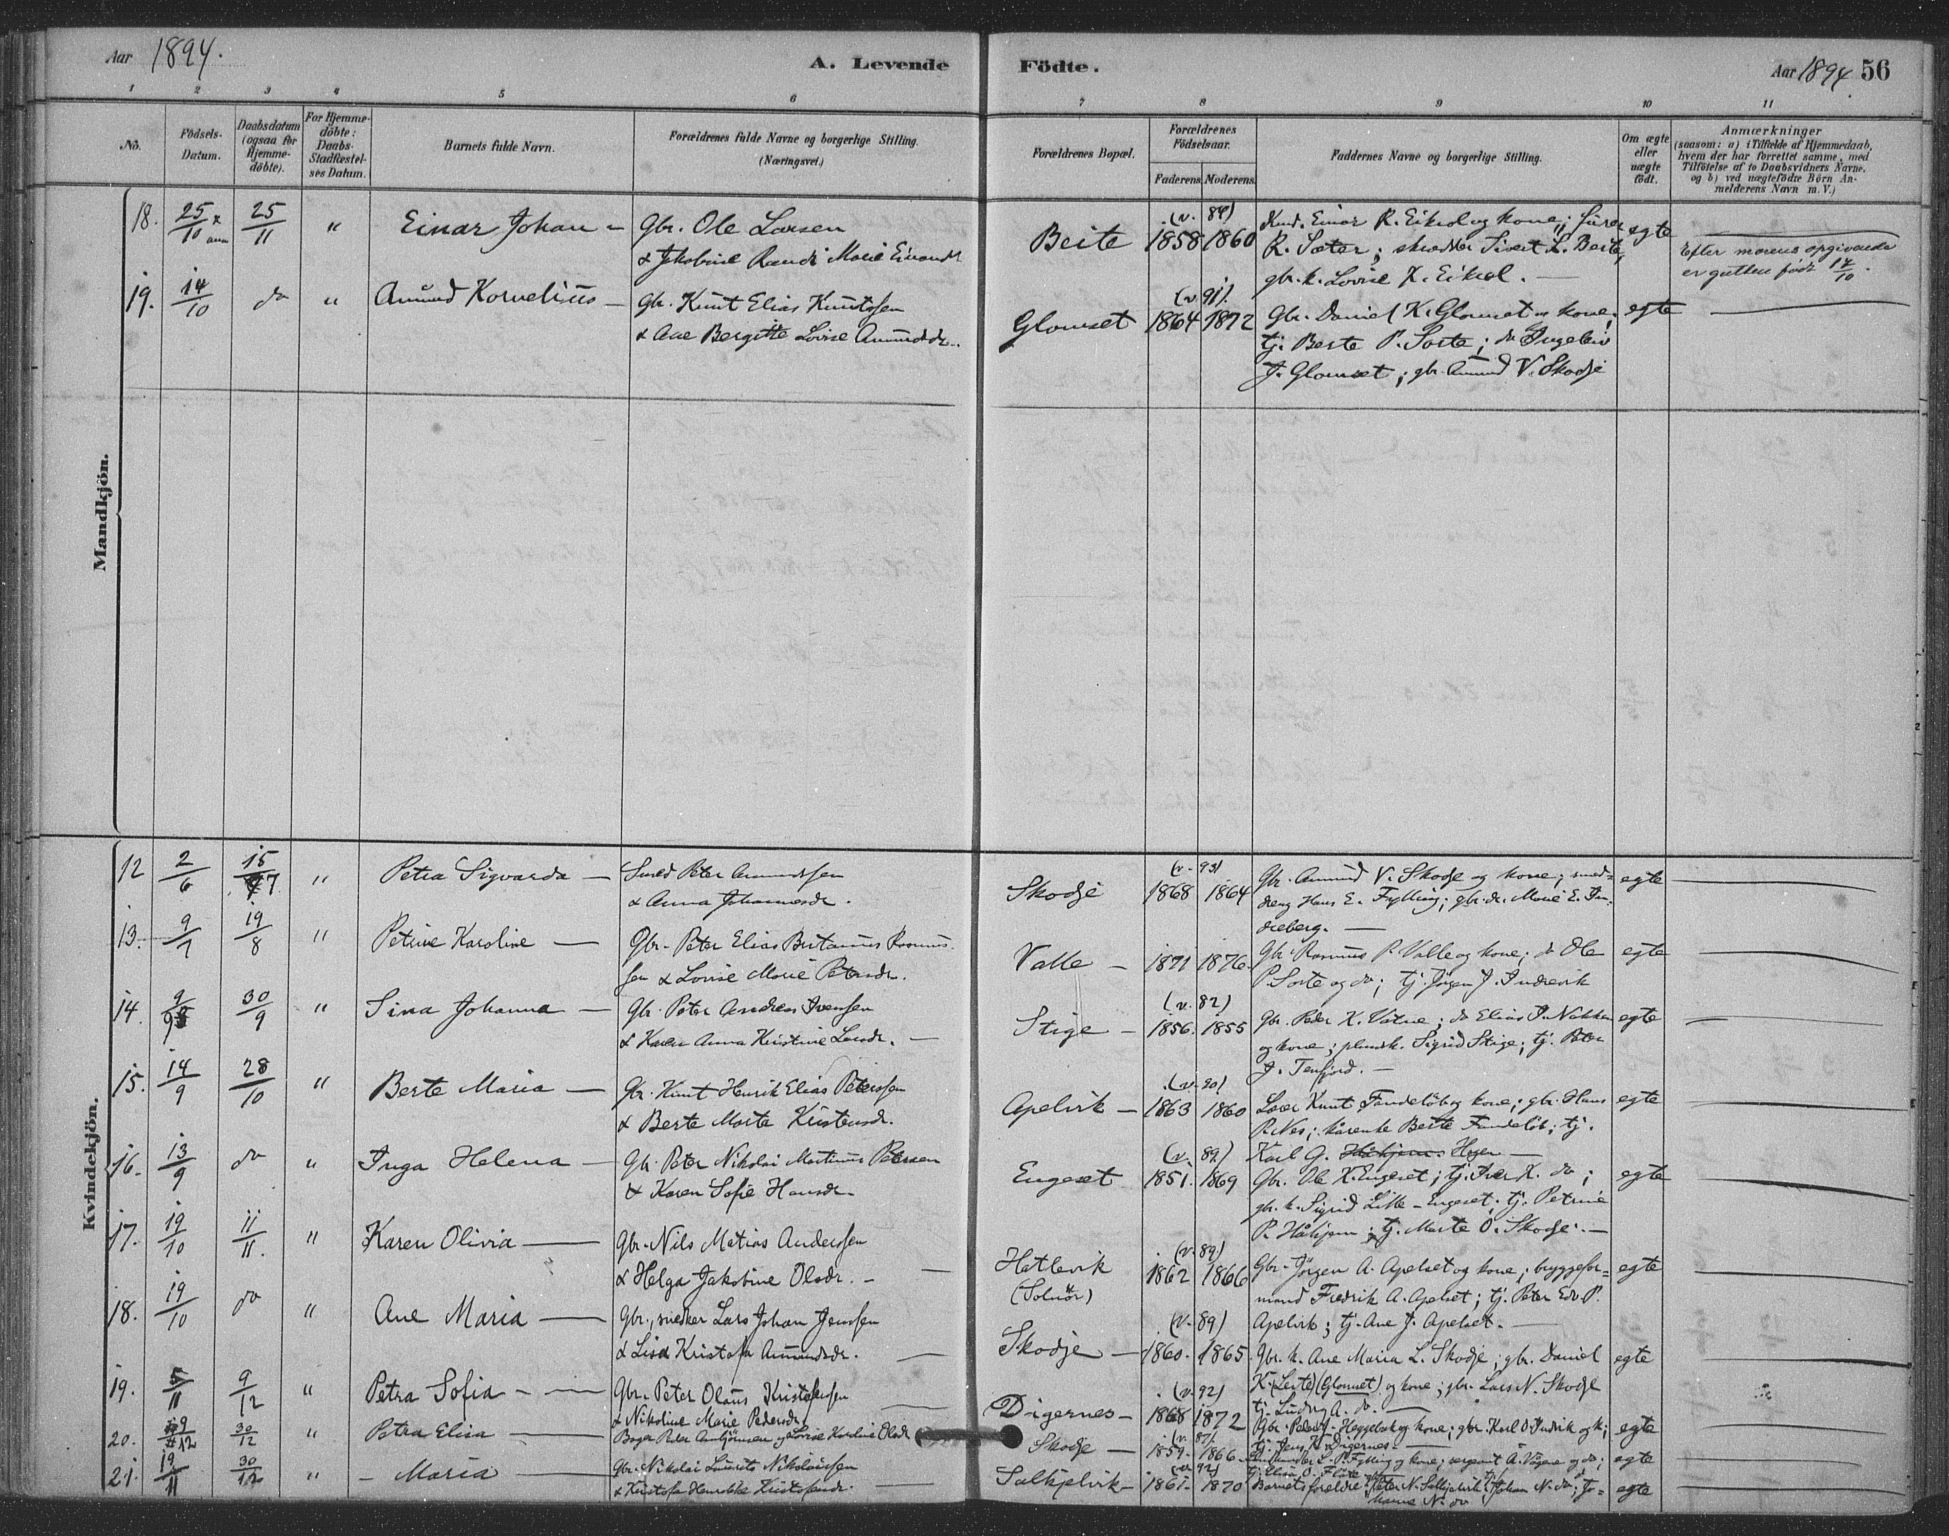 Aar 1894.
A. Levende Födte.
Aar 1894 56
1 2 3 4 5 6 7 8 9 10 11
No.
Födsels-Datum.
Daabsdatum (ogsaa for Hjemme-döbte).
For Hjemme-döbte: Daabs-Stadfæstel-ses Datum.
Barnets fulde Navn.
Forældrenes fulde Navne og borgerlige Stilling. (Næringsvei.)
Forældrenes Bopæl.
Forældrenes Födselsaar.
Faderens. Moderens.
Faddernes Navne og borgerlige Stilling.
Om ægte eller uægte födt.
Anmærkninger
(saasom: a) i Tilfælde af Hjemmedaab,
hvem der har forrettet samme, med
Tilföielse af to Daabsvidners Navne,
og b) ved uægtefödte Börn An-
melderens Navn m. V.)
Mandkjön.
18. 25/10 25/11 " Einar Johan – Gbr. Ole Larsen
& Jakobine Randi Marie Einarsdr
Beite (v. 84) 1858 1860
Einar R. Eikrol og kone;
R. Sæter; skrædder Sivert L. Beite,
gbr. k. Lovise K. Eikrol. –
egte
Efter morens opgivende
er gutten födt 14/10.
19. 14/10 do " Amund Kornelius – Gbr. Knut Elias Knutssen
& Ane Bergitte Lovise Amundsdr.
Glomset (v. 91) 1864 1872
Gbr. Daniel K. Glomset og kone;
tj. Berte P. Sorte; do Ingeleiv
J. Glomset; gbr. Amund V. Skodje
egte
Kvindekjön.
12 2/6 15/7 " Petra Sigvarda – Smed Peter Amundssen
& Anna Johannesdr.
Skodje (v. 93) 1868 1864
Gbr. Amund V. Skodje og kone; smed=
dreng Hans E. Fylling; gbr. dr. Marie E. In-
dreberg. –
egte
13. 9/7 19/8 " Petrine Karoline – Gbr. Peter Elias Bertanus Rasmus-
sen & Lovise Marie Petersdr.
Valle – 1871 1876.
Gbr. Rasmus P. Valle og kone; do Ole
P. Sorte og do; tj. Jörgen J. Indrevik
egte
14. 9/9 30/9 " Sina Johanna – Gbr. Peter Andreas Ivenssen
& Karen Anna Kristine Larsdr. –
Stige – (v. 82) 1856. 1855
Gbr. Peder K. Vatne; do Elias I. Nakken
og kone; Sigrid Stige; tj. Peter
J. Tenfjord. –
egte
15. 14/9 28/10 " Berte Maria – Gbr. Knut Henrik Elias Peterssen
& Berte Marte Kristensdr.
Apelvik – (v. 90) 1863 1860
Lærer Knut Fandelöb og kone; gbr. Hans
P. Nes; kårenke Berte Fandelöb; tj.
Karl G. Hessen –
egte
16. 13/9 do " Inga Helena – Gbr. Peter Nikolai Martinus Petersen
& Karen Sofie Hansdr.
Engeset (v. 89) 1851. 1869
Gbr. Ole K. Engeset; tj. Iver K. do;
gbr. k. Sigrid Lille-Engeset; tj. Petrine
P. Håhjem; tj. Marte O. Skodje. –
egte
17. 19/10 11/11. " Karen Olivia – Gbr. Nils Matias Anderssen
& Helga Jakobine Olsdr. –
Hatlevik (Solnör) (v. 89) 1862 1866
Gbr. Jörgen A. Apelset og kone; bryggefor=
mand Fredrik A. Apelset; tj. Peter Edv. P.
Apelvik; tj. Ane J. Apelset. –
egte
18. 19/10 do " Ane Maria – Gbr., snedker Lars Johan Jenssen
& Lisa Kristofa Amundsdr. –
Skodje – (v. 89) 1860. 1865.
Gbr. k. Ane Maria L. Skodje; gbr. Daniel
K. (Leite) (Glomset) og kone; gbr. Lars N. Skodje
tj. Ludvig A. do. –
egte
19. 5/11 9/12 " Petra Sofia – Gbr. Peter Olaus Kristofersen
& Nikoline Marie Pedersdr.
Digernes – (v. 92) 1868 1872
Gbr. Peder J. Heggebak og kone; gbr. Karl O. Indrevik og k;
tj. Jens K. Digernes. –
egte
20. 30/12 " Petra Elisa – Bager Peder Arntjönsen og Lovise Karoline Olsdr
Skodje – (v. 87) 1859. 1866
L. P. Fylling og kone; sergeant A. Vågene og do;
tj. Elisa O.
egte
21. 19/11 30/12 " – Maria – Gbr. Nikolai Laurits Nikolaissen
& Kristofa Henrikke Kristofersdr. –
Solkjelvik – (v. 92) 1867. 1870
Barnets foreldre; Peter N. Solkjelvik; Johan N. do; Jo-
hanne N. do
egte